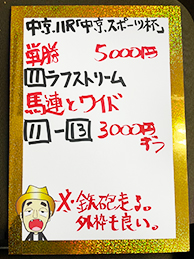 中京.11R「中京.スポーツ杯」
単勝 5000円
11ラフストリーム
馬連とワイド
11-13 3000円ずつ
X.鉄砲走る。
外枠も良い。